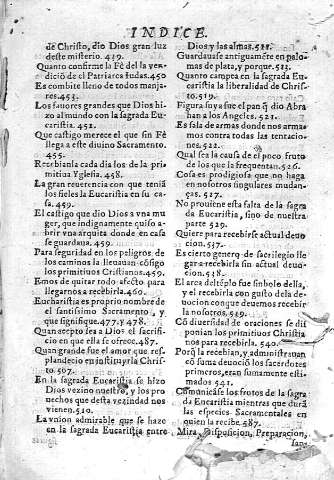 INDICE.
de Christo, dio Dios gran luz
deste misterio. 439.
Quanto confirme la Fè del la ven-
dició de el Patriarca Iudas. 450
Es combite lleno de todos manja-
res. 453.
Los fauores grandes que Dios hi-
zo al mundo con la sagrada Eu-
caristia. 452.
Que castigo merece el que sin Fè
llega a este diuino Sacramento.
455.
Recebianla cada dia los de la pri-
mitiua Yglesia. 458.
La gran reuerencia con que tenia
los fieles la Eucaristia en su ca-
sa. 459.
El castigo que dio Dios a vna mu
ger, que indignamente quiso a-
brir vna arquita donde en casa
se guardaua. 459.
Para seguridad en los peligros de
los caminos la lleuauan cósigo
los primitiuos Cristianos. 459.
Emos de quitar todo afecto para
llegarnos a recebirla. 460.
Eucharistia es proprio nombre de
el santissimo Sacramento, y
que signifique. 477. y 478.
Quan acepto sea a Dios el sacrifi-
cio en que ella se ofrece. 487.
Quan grande fue el amor que res-
plandecio en instituyrla Christ-
to. 507.
En la sagrada Eucaristia se hizo
Dios vezino nuestro, y los pro
uechos que desta vezindad nos
vienen. 510.
La vnion admirable que se haze
en la sagrada Eucaristia entre
Dios y las almas. 511.
Guardauase antiguamẽte en palo-
mas de plata, y porque. 513.
Quanto campea en la sagrada Eu-
caristia la liberalidad de Chris-
to. 519.
Figura suya fue el pan q̃ dio Abra
han a los Angeles. 521.
Es sala de armas donde nos arma-
mos contra todas las tentacio-
nes. 522.
Qual sea la causa de el poco fruto
de los que la frequentan. 526.
Cosa es prodigiosa que no haga
en nosotros singulares mudan-
ças. 527.
No prouiene esta falta de la sagra
da Eucaristia, sino de nuestra
parte 529.
Quiere para recebirse actual deuo
cion. 537.
Es cierto genero de sacrilegio lle
gar a recebirla sin actual deuo-
cion. 538.
El arca del tẽplo fue sinbolo della,
y el recebirla con gusto de la de-
uocion con que deuemos recebir
la nosotros. 519.
Có diuersidad de oraciones se dis
ponian los primitiuos Christia
nos para recebirla. 540.
Porq̃ la recebian, y administrauan
có suma deuociô los sacerdotes
primeros, eran sumamente esti-
mados. 541.
Comunicãse los frutos de la sagra
da Eucaristia mientras que durã
las especies Sacramentales en
quien la recibe. 587.
Mira, Disposicion, Preparacion,